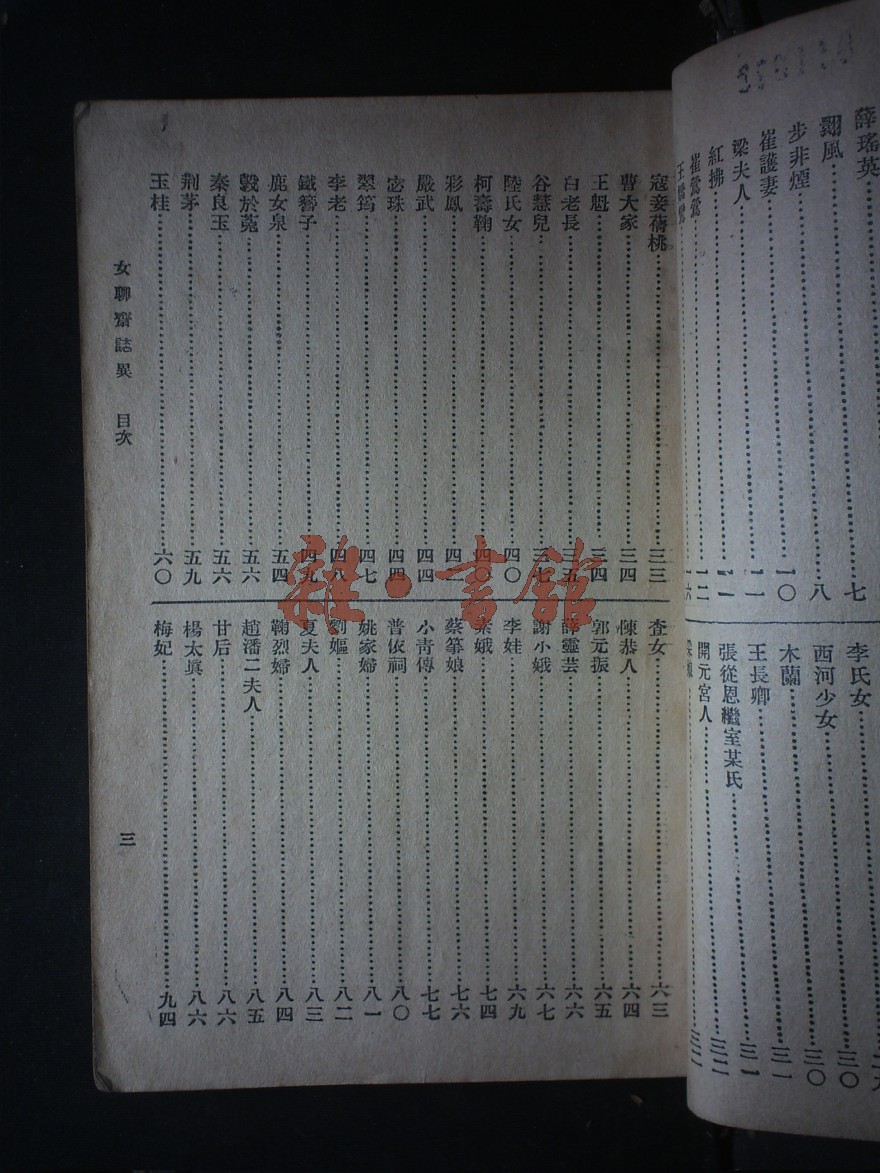 薛瑤英⋯⋯七
翾風⋯⋯八
步非煙⋯⋯一〇
崔護妻⋯⋯一一
梁夫人⋯⋯一一
紅拂⋯⋯一二
崔鶯鶯⋯⋯一六
李氏女⋯⋯三〇
西河少女⋯⋯三〇
木蘭⋯⋯三一
王長卿⋯⋯三一
張從恩繼室某氏⋯⋯三二
開元宮人⋯⋯三二
寇妾蒨桃⋯⋯三三
曹大家⋯⋯三四
王魁⋯⋯三四
白老長⋯⋯三五
谷慧兒⋯⋯三七
陸氏女⋯⋯四〇
柯壽鞠⋯⋯四〇
彩鳳⋯⋯
嚴武⋯⋯四四
宓珠⋯⋯四四
翠筠⋯⋯四七
李老⋯⋯四八
鐵簪子⋯⋯四九
鹿女泉⋯⋯五四
穀於菟⋯⋯五六
秦良玉⋯⋯五六
荆茅⋯⋯五九
玉桂⋯⋯六〇
查女⋯⋯六三
陳恭人⋯⋯六四
郭元振⋯⋯六五
薛靈芸⋯⋯六六
謝小娥⋯⋯六七
李娃⋯⋯六九
素娥⋯⋯七四
蔡箏娘⋯⋯七六
小青傳⋯⋯七七
普依祠⋯⋯八〇
姚家婦⋯⋯八一
劉嫗⋯⋯八二
夏夫人⋯⋯八三
鞠烈婦⋯⋯八四
趙潘二夫人⋯⋯八五
甘后⋯⋯八六
楊太眞⋯⋯八六
梅妃⋯⋯九四
女聊齋誌異 目次
三
雜·書館